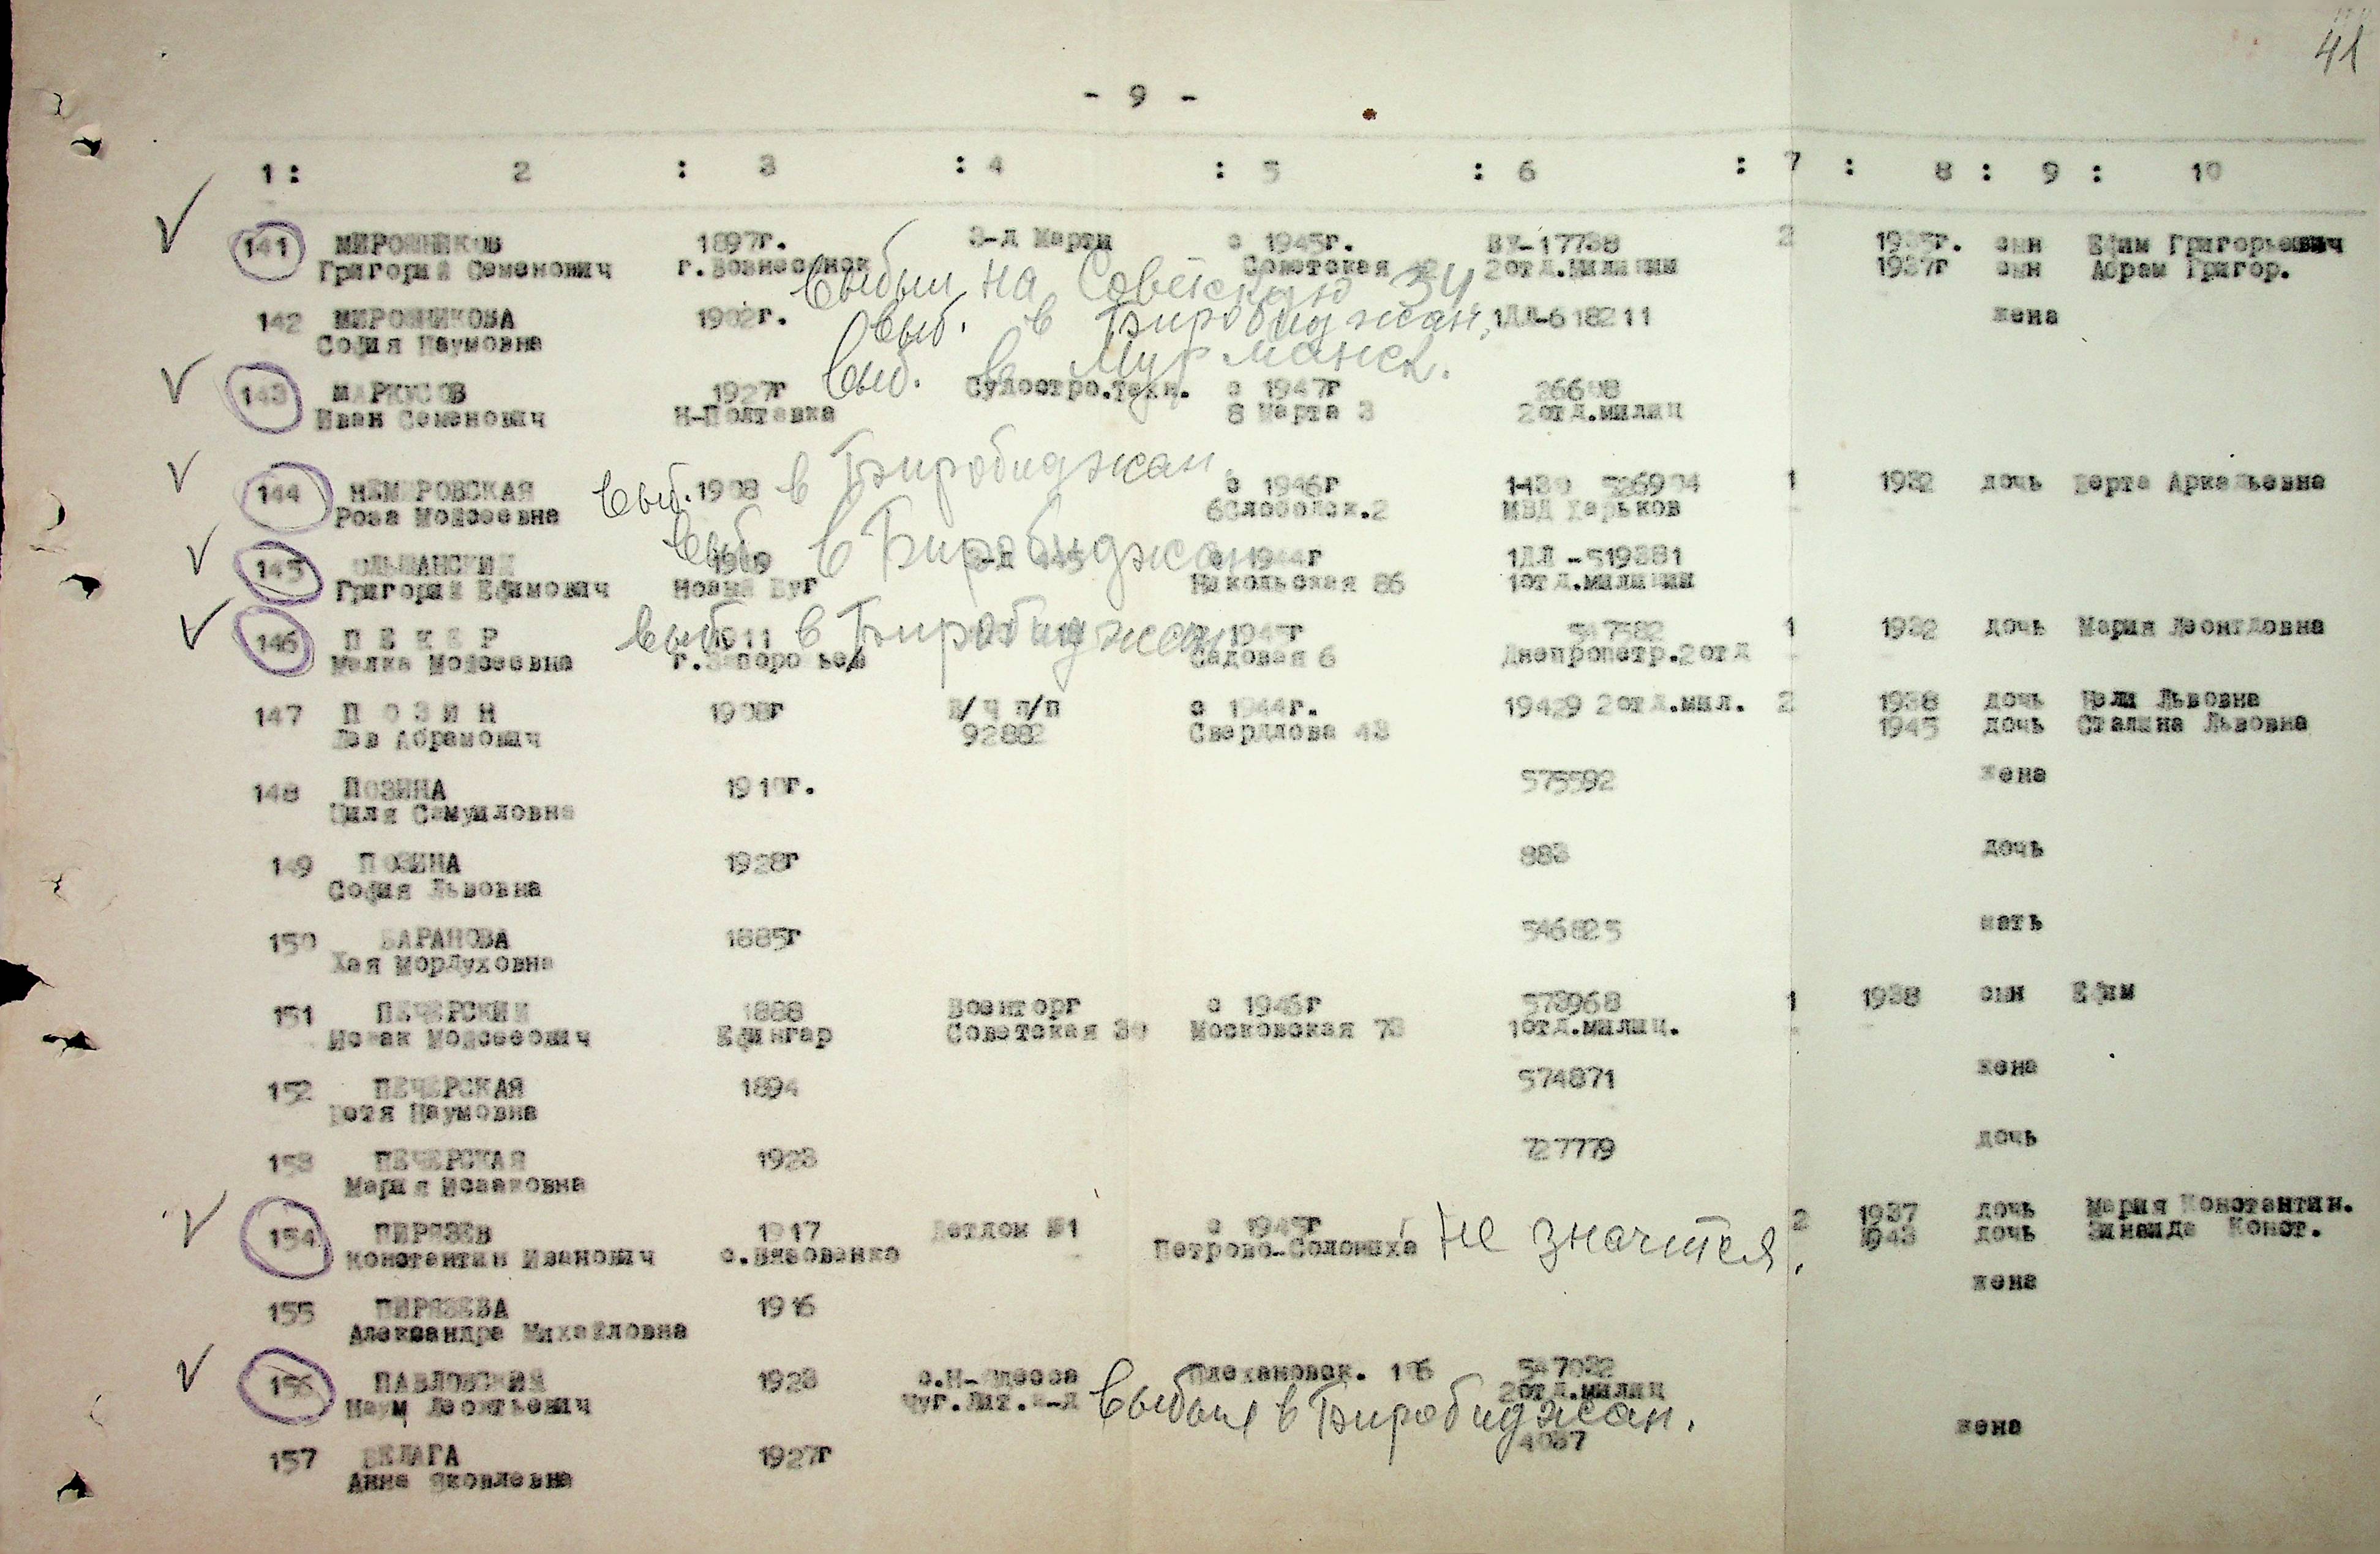 41
- 9 -
1 : 2 : 3 : 4 : 5 : 6 : 7 : 8 : 9 : 10
141 МИРОШНИКОВ 1897г. З-д Марти с 1945г. ВУ-17738 2 1935г. сын Ефим Григорьевич
Григорий Семенович г.Вознесенск Советская 2отд.милиции 1937г сын Абрам Григор.
Выбыл на Советскую 34
142 МИРОШНИКОВА 1902г. выб. в Биробиджан. 1ДД-618211 жена
София Наумовна
Выб. в Мурманск.
143 МАРКУСОВ 1927г Судостро.техн. с 1947г 26698
Иван Семенович Н-Полтавка 8 Марта 3 2отд.милиц
выб. в Биробиджан.
144 НЕМИРОВСКАЯ 1908 с 1946г 526904 1 1932 дочь Берта Аркадьевна
Роза Моисеевна 6Слободск.2 МВД Харьков
выб. в Биробиджан
145 ОЛЬШАНСКИЙ 1909 З-д 445 с 1944г 1ДД-519381
Григорий Ефимович Новый Буг Никольская 86 1отд.милиции
выб в Биробиджан
146 П Е К Е Р 1911 с 1945г 547582 1 1932 дочь Мария Леонтьовна
Малка Моисеевна г.Запорожье Садовая 6 Днепропетр.2отд
147 П О З И Н 1908г В/ч п/п с 1944г. 19429 2отд.мил. 2 1938 дочь Нели Львовна
Лев Абрамович 92882 Свердлова 43 1945 дочь Сталина Львовна
148 ПОЗИНА 1910г. 575592 жена
Циля Самуиловна
149 ПОЗИНА 1928г 883 дочь
София Львовна
150 БАРАНОВА 1885г 546825 мать
Хая Мордуховна
151 ПЕЧЕРСКИЙ 1888 Военторг с 1946г 578968 1 1938 сын Ефим
Исаак Моисеевич Ефингар Советская 30 Московская 73 1отд.милиц.
152 ПЕЧЕРСКАЯ 1894 574871 жена
Готя Наумовна
153 ПЕЧЕРСКАЯ 1923 727779 дочь
Мария Исааковна
154 ПИРЯЗЕВ 1917 Детдом №1 с 1945г Не значится. 2 1937 дочь Мария Константин.
Константин Иванович Петрово-Солониха 1943 дочь Зинаида Конст.
155 ПИРЯЗЕВА 1916 жена
Александра Михайловна
156 ПАВЛОВСКИЙ 1923 с.Н-Одесса Плехановск. 106 547032
Наум Леонтьевич Чуг.Лит.з-д 2отд.милиц
Выбыл в Биробиджан.
157 БЕЛАГА 1927г 4037 жена
Анна Яковлевна